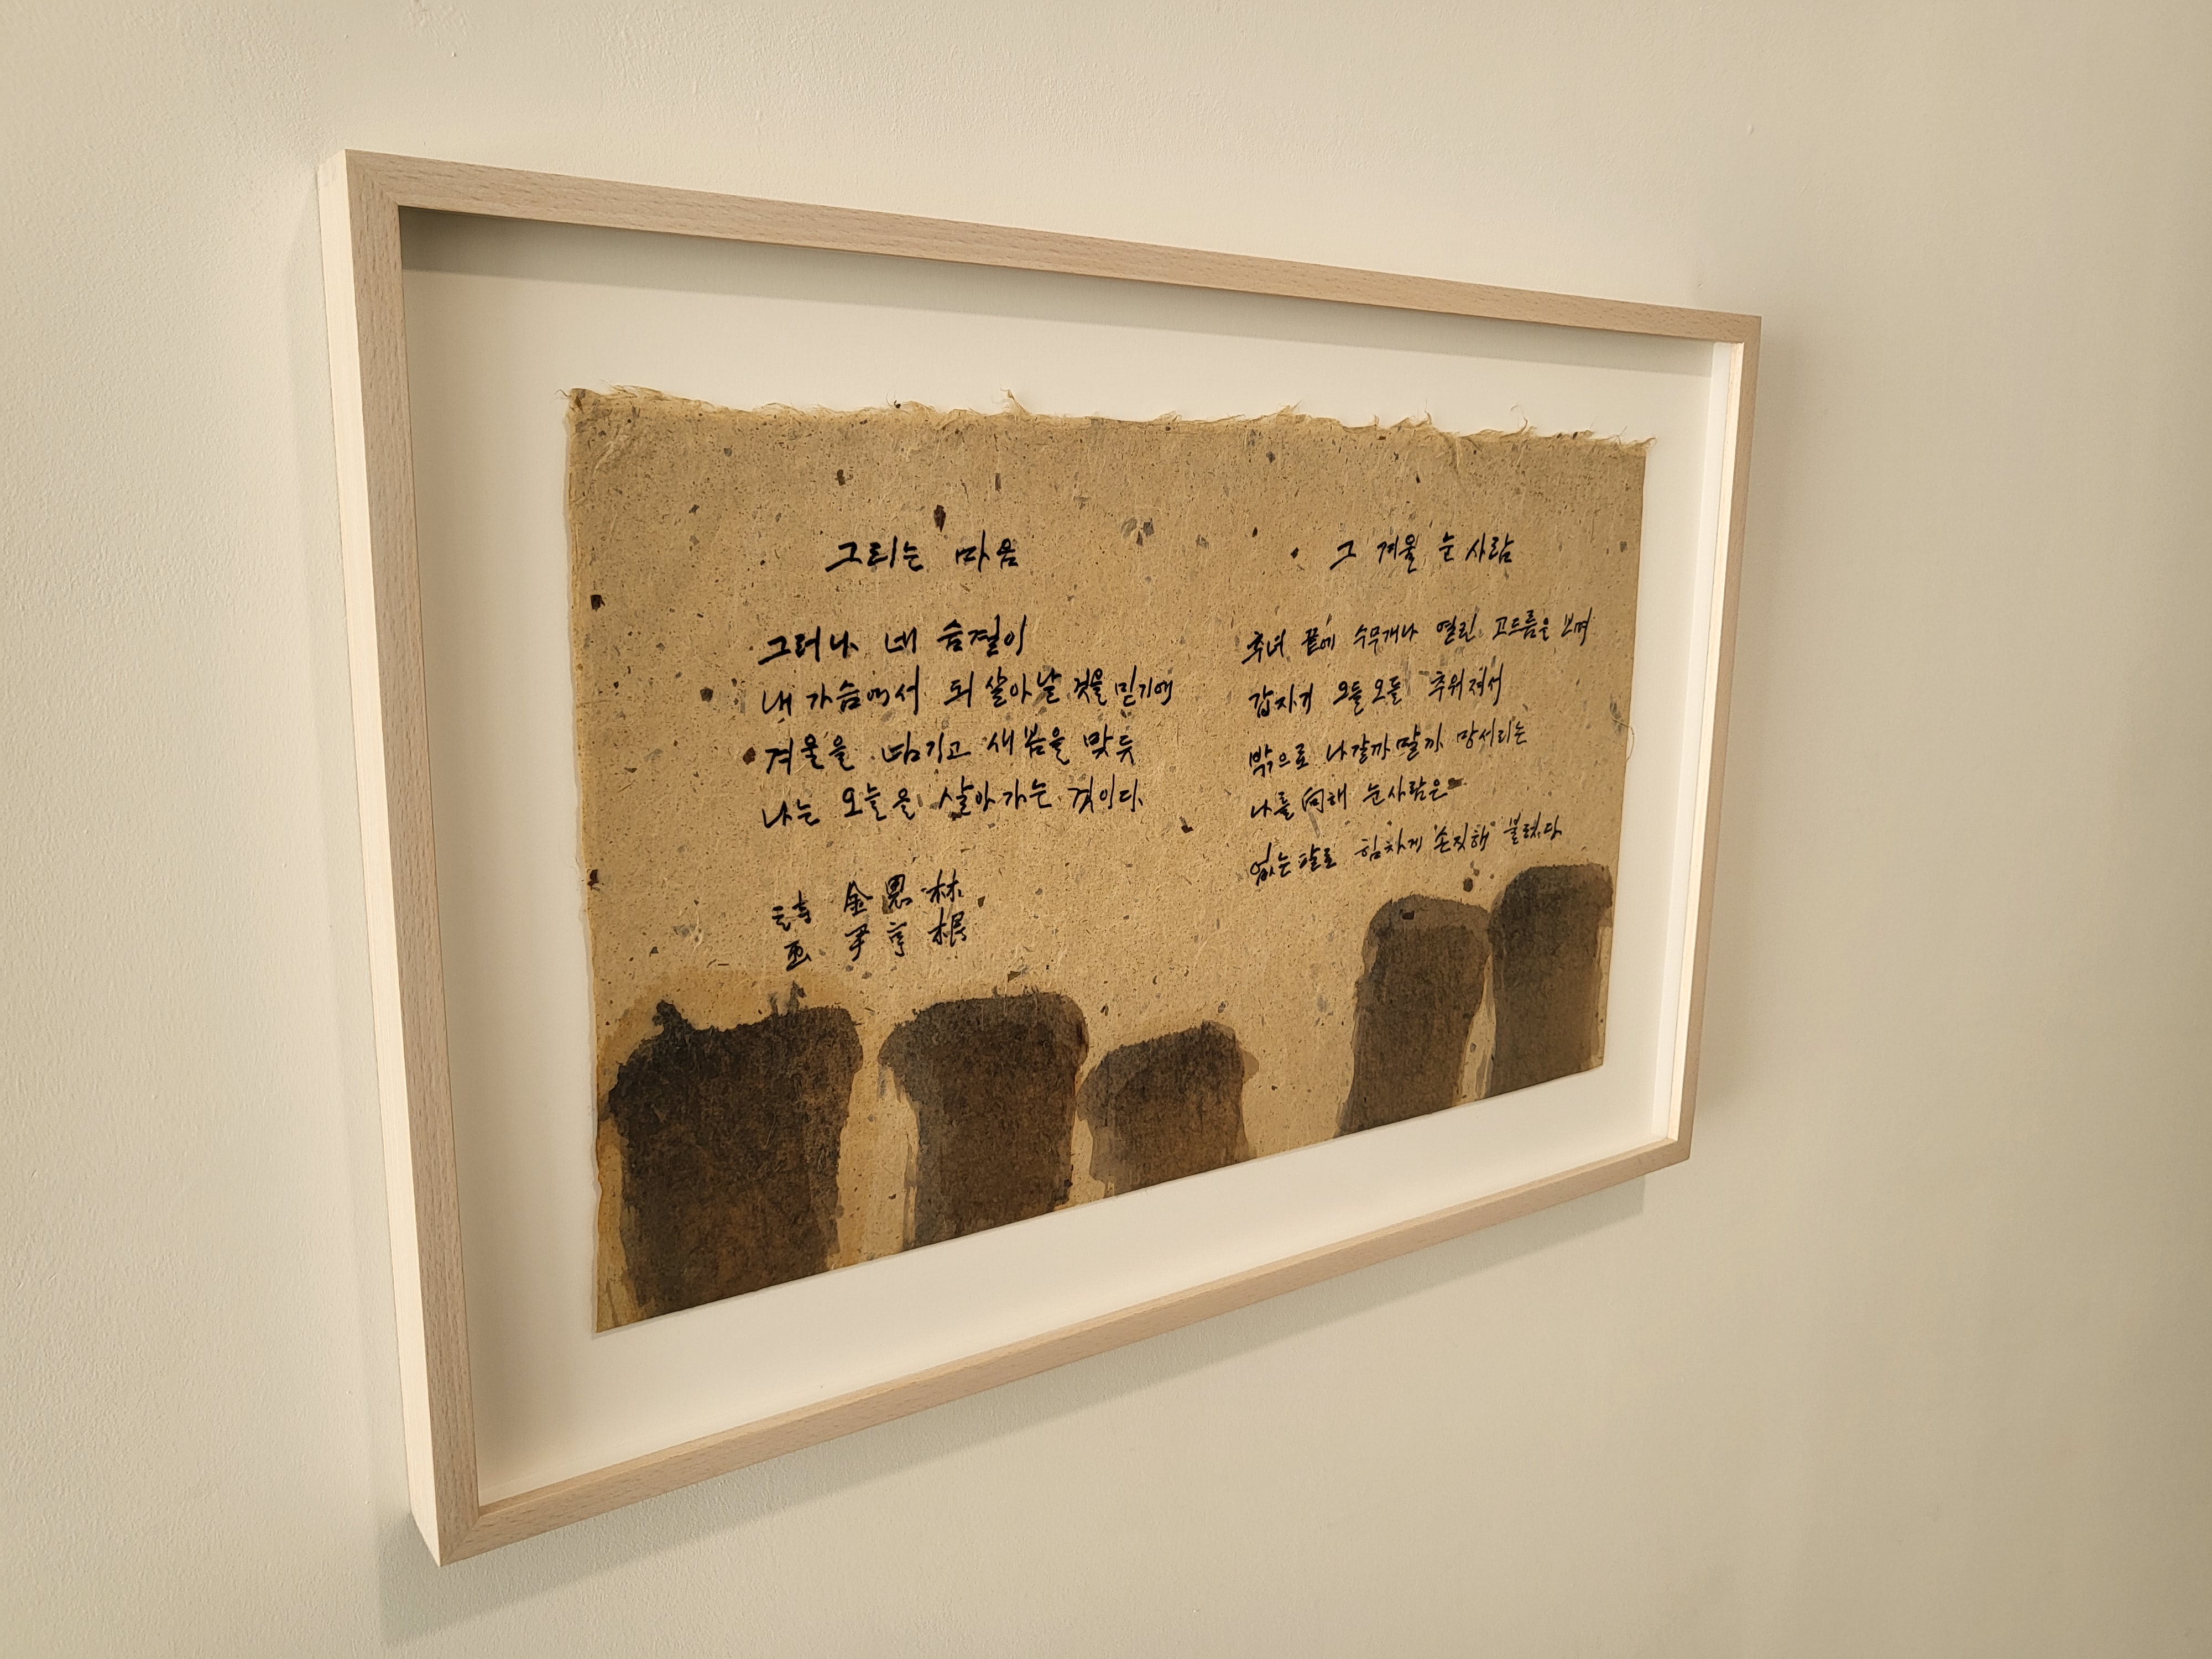 그리는 마음
그러나 네 숨결이
내 가슴에서 되살아날 것을 믿기에
겨울을 넘기고 새봄을 맞듯
나는 오늘을 살아가는 것이다.
詩 金恩林
画 尹亨根
그 겨울 눈사람
추녀 끝에 수무개나 열린 고드름을 보며
갑자기 오들오들 추워져서
밖으로 나갈까 말까 망서리는
나를 向해 눈사람은
없는 팔로 힘차게 손짓해 불렀다.